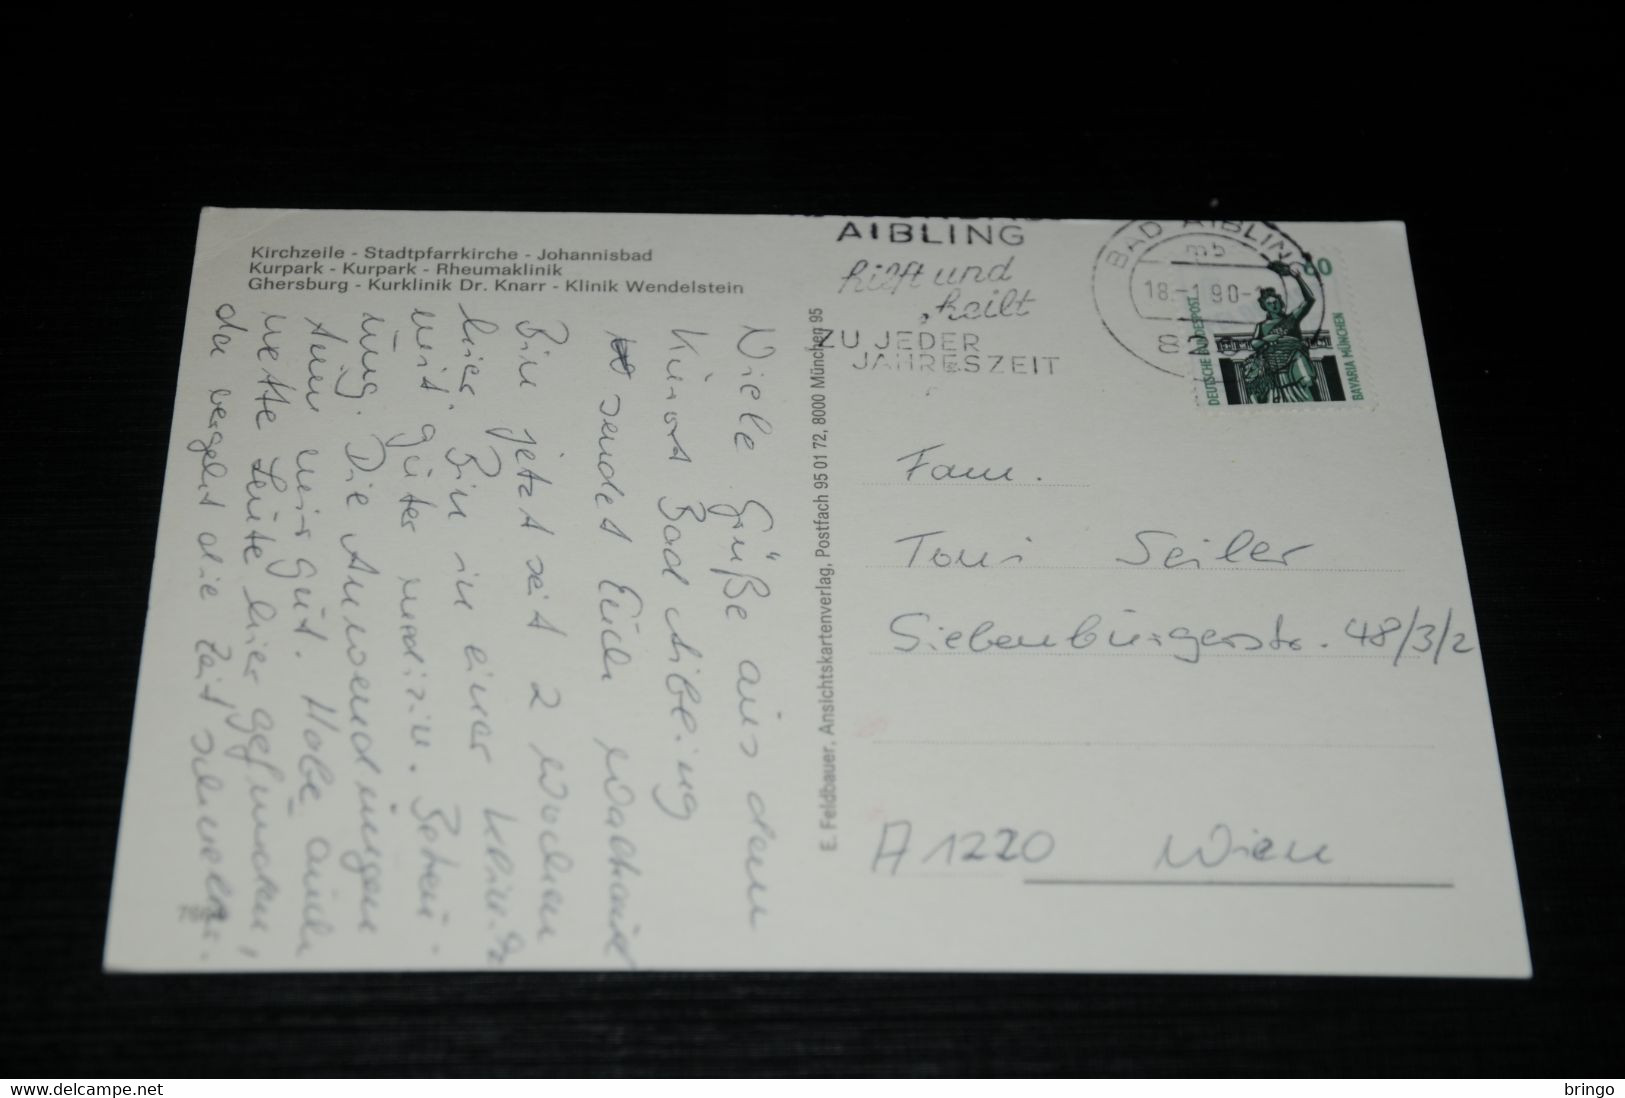 Kirchzeile - Stadtpfarrkirche - Johannisbad
Kurpark - Kurpark - Rheumaklinik
Ghersburg - Kurklinik Dr. Knarr - Klinik Wendelstein
AIBLING
hilft und
heilt
ZU JEDER
JAHRESZEIT
BAD AIBLING
mb
18.-1.90-
DEUTSCHE BUNDESPOST
60
BAVARIA MÜNCHEN
Viele Grüße aus dem
Kurort Bad Aibling
sendet Euch
Bin jetzt seit 2 Wochen
hier. Bin in einer Klinik
mit guter medizin. Betreu-
ung. Die Anwendungen
tun mir gut. Habe auch
nette Leute hier gefunden,
da vergeht die Zeit schneller.
E. Feldbauer, Ansichtskartenverlag, Postfach 95 01 72, 8000 München 95
Fam.
Toni Seiler
Siebenbürgerstr. 48/3/2
A 1220 Wien
bringo
www.delcampe.net